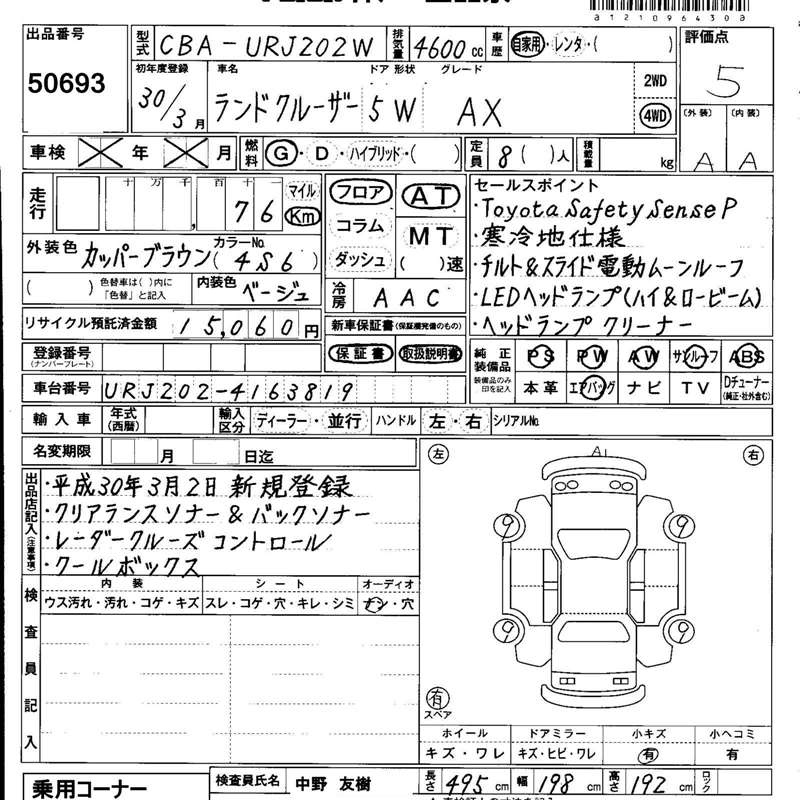 a12109643 0a
出品番号
50693
型式 CBA-URJ202W 排気量 4600 cc 車歴 自家用・レンタ・( )
評価点 5
初年度登録 30/3月
車名 ドア 形状 グレード
ランドクルーザー 5 W AX
2WD
4WD
(外装) (内装)
A A
車検 年 月 燃料 G・D・ハイブリッド・( ) 定員 8( )人 積載量 kg
走行 十万千百十一 マイル
, 76 Km
フロア AT
コラム MT
ダッシュ ( )速
セールスポイント
・Toyota Safety Sense P
・寒冷地仕様
・チルト&スライド電動ムーンルーフ
・LEDヘッドランプ(ハイ&ロービーム)
・ヘッドランプ クリーナー
外装色 カッパーブラウン カラーNo.(4S6)
( ) 色替車は( )内に「色替」と記入 内装色 ベージュ
冷房 AAC
リサイクル預託済金額 15,060円
新車保証書(保証継続後のもの)
保証書 取扱説明書
登録番号
(ナンバープレート)
純正装備品 PS PW AW サンルーフ ABS
装備品のみ印を記入 本革 エアバッグ ナビ TV Dチューナー
(純正・社外含む)
車台番号 URJ202-4163819
輸入車 年式(西暦) 輸入区分 ディーラー・並行 ハンドル 左・右 シリアルNo.
名変期限 月 日迄
出品店記入(注意事項)
・平成30年3月2日 新規登録
・クリアランスソナー&バックソナー
・レーダークルーズコントロール
・クールボックス
左 A1 右
9 9
9 9
有
スペア
検査員記入
内装 シート オーディオ
ウス汚れ・汚れ・コゲ・キズ スレ・コゲ・穴・キレ・シミ ナシ・穴
ホイール ドアミラー 小キズ 小ヘコミ
キズ・ワレ キズ・ヒビ・ワレ 有 有
乗用コーナー
検査員氏名 中野 友樹 長さ 495 cm 幅 198 cm 高さ 192 cm ロック